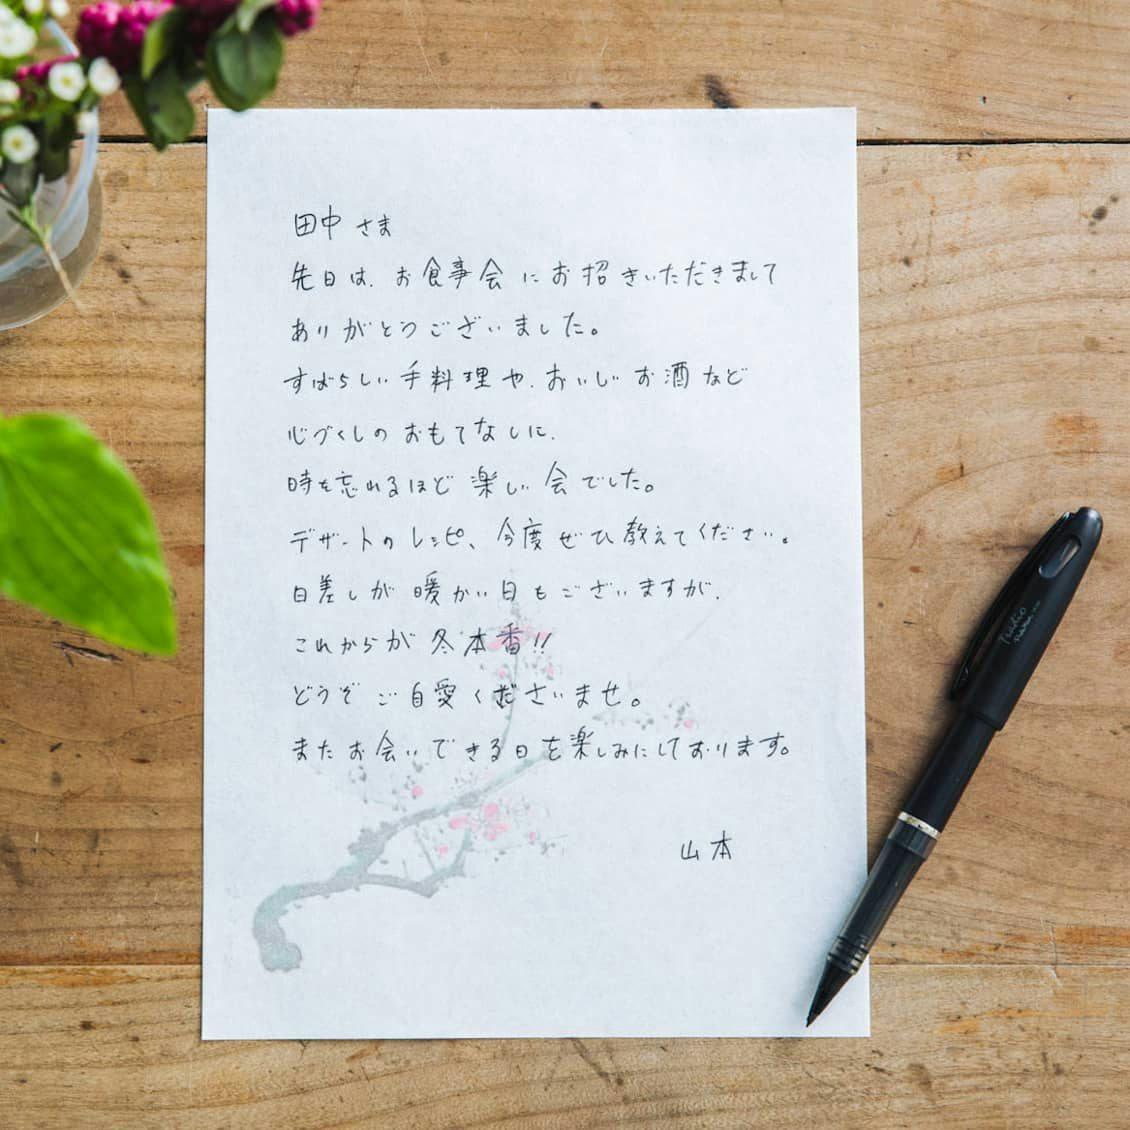 田中さま
先日は、お食事会にお招きいただきまして
ありがとうございました。
すばらしい手料理や、おいしいお酒など
心づくしのおもてなしに、
時を忘れるほど楽しい会でした。
デザートのレシピ、今度ぜひ教えてください。
日差しが暖かい日もございますが、
これからが冬本番!!
どうぞご自愛くださいませ。
またお会いできる日を楽しみにしております。
山本
Tradio